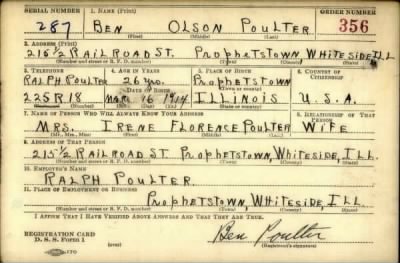 SERIAL NUMBER 1. NAME (Print) ORDER NUMBER
287 BEN OLSON POULTER 356
(First) (Middle) (Last)
2. ADDRESS (Print)
215 1/2 RAILROAD ST. PROPHETSTOWN WHITESIDE ILL
(Number and street or R. F. D. number) (Town) (County) (State)
3. TELEPHONE 4. AGE IN YEARS 5. PLACE OF BIRTH 6. COUNTRY OF CITIZENSHIP
RALPH POULTER 26 YRS. PROPHETSTOWN
DATE OF BIRTH (Town or county)
225R18 MAR. 16 1914 ILLINOIS U.S.A.
(Mo.) (Day) (Yr.) (State or country)
7. NAME OF PERSON WHO WILL ALWAYS KNOW YOUR ADDRESS 8. RELATIONSHIP OF THAT PERSON
MRS. IRENE FLORENCE POULTER WIFE
(Mr., Mrs., Miss) (First) (Middle) (Last)
9. ADDRESS OF THAT PERSON
215 1/2 RAILROAD ST. PROPHETSTOWN, WHITESIDE, ILL.
(Number and street or R. F. D. number) (Town) (County) (State)
10. EMPLOYER'S NAME
RALPH POULTER.
11. PLACE OF EMPLOYMENT OR BUSINESS
PROPHETSTOWN, WHITESIDE, ILL.
(Number and street or R. F. D. number) (Town) (County) (State)
I AFFIRM THAT I HAVE VERIFIED ABOVE ANSWERS AND THAT THEY ARE TRUE.
REGISTRATION CARD
D. S. S. Form 1 (over) Ben Poulter
(Registrant's signature)